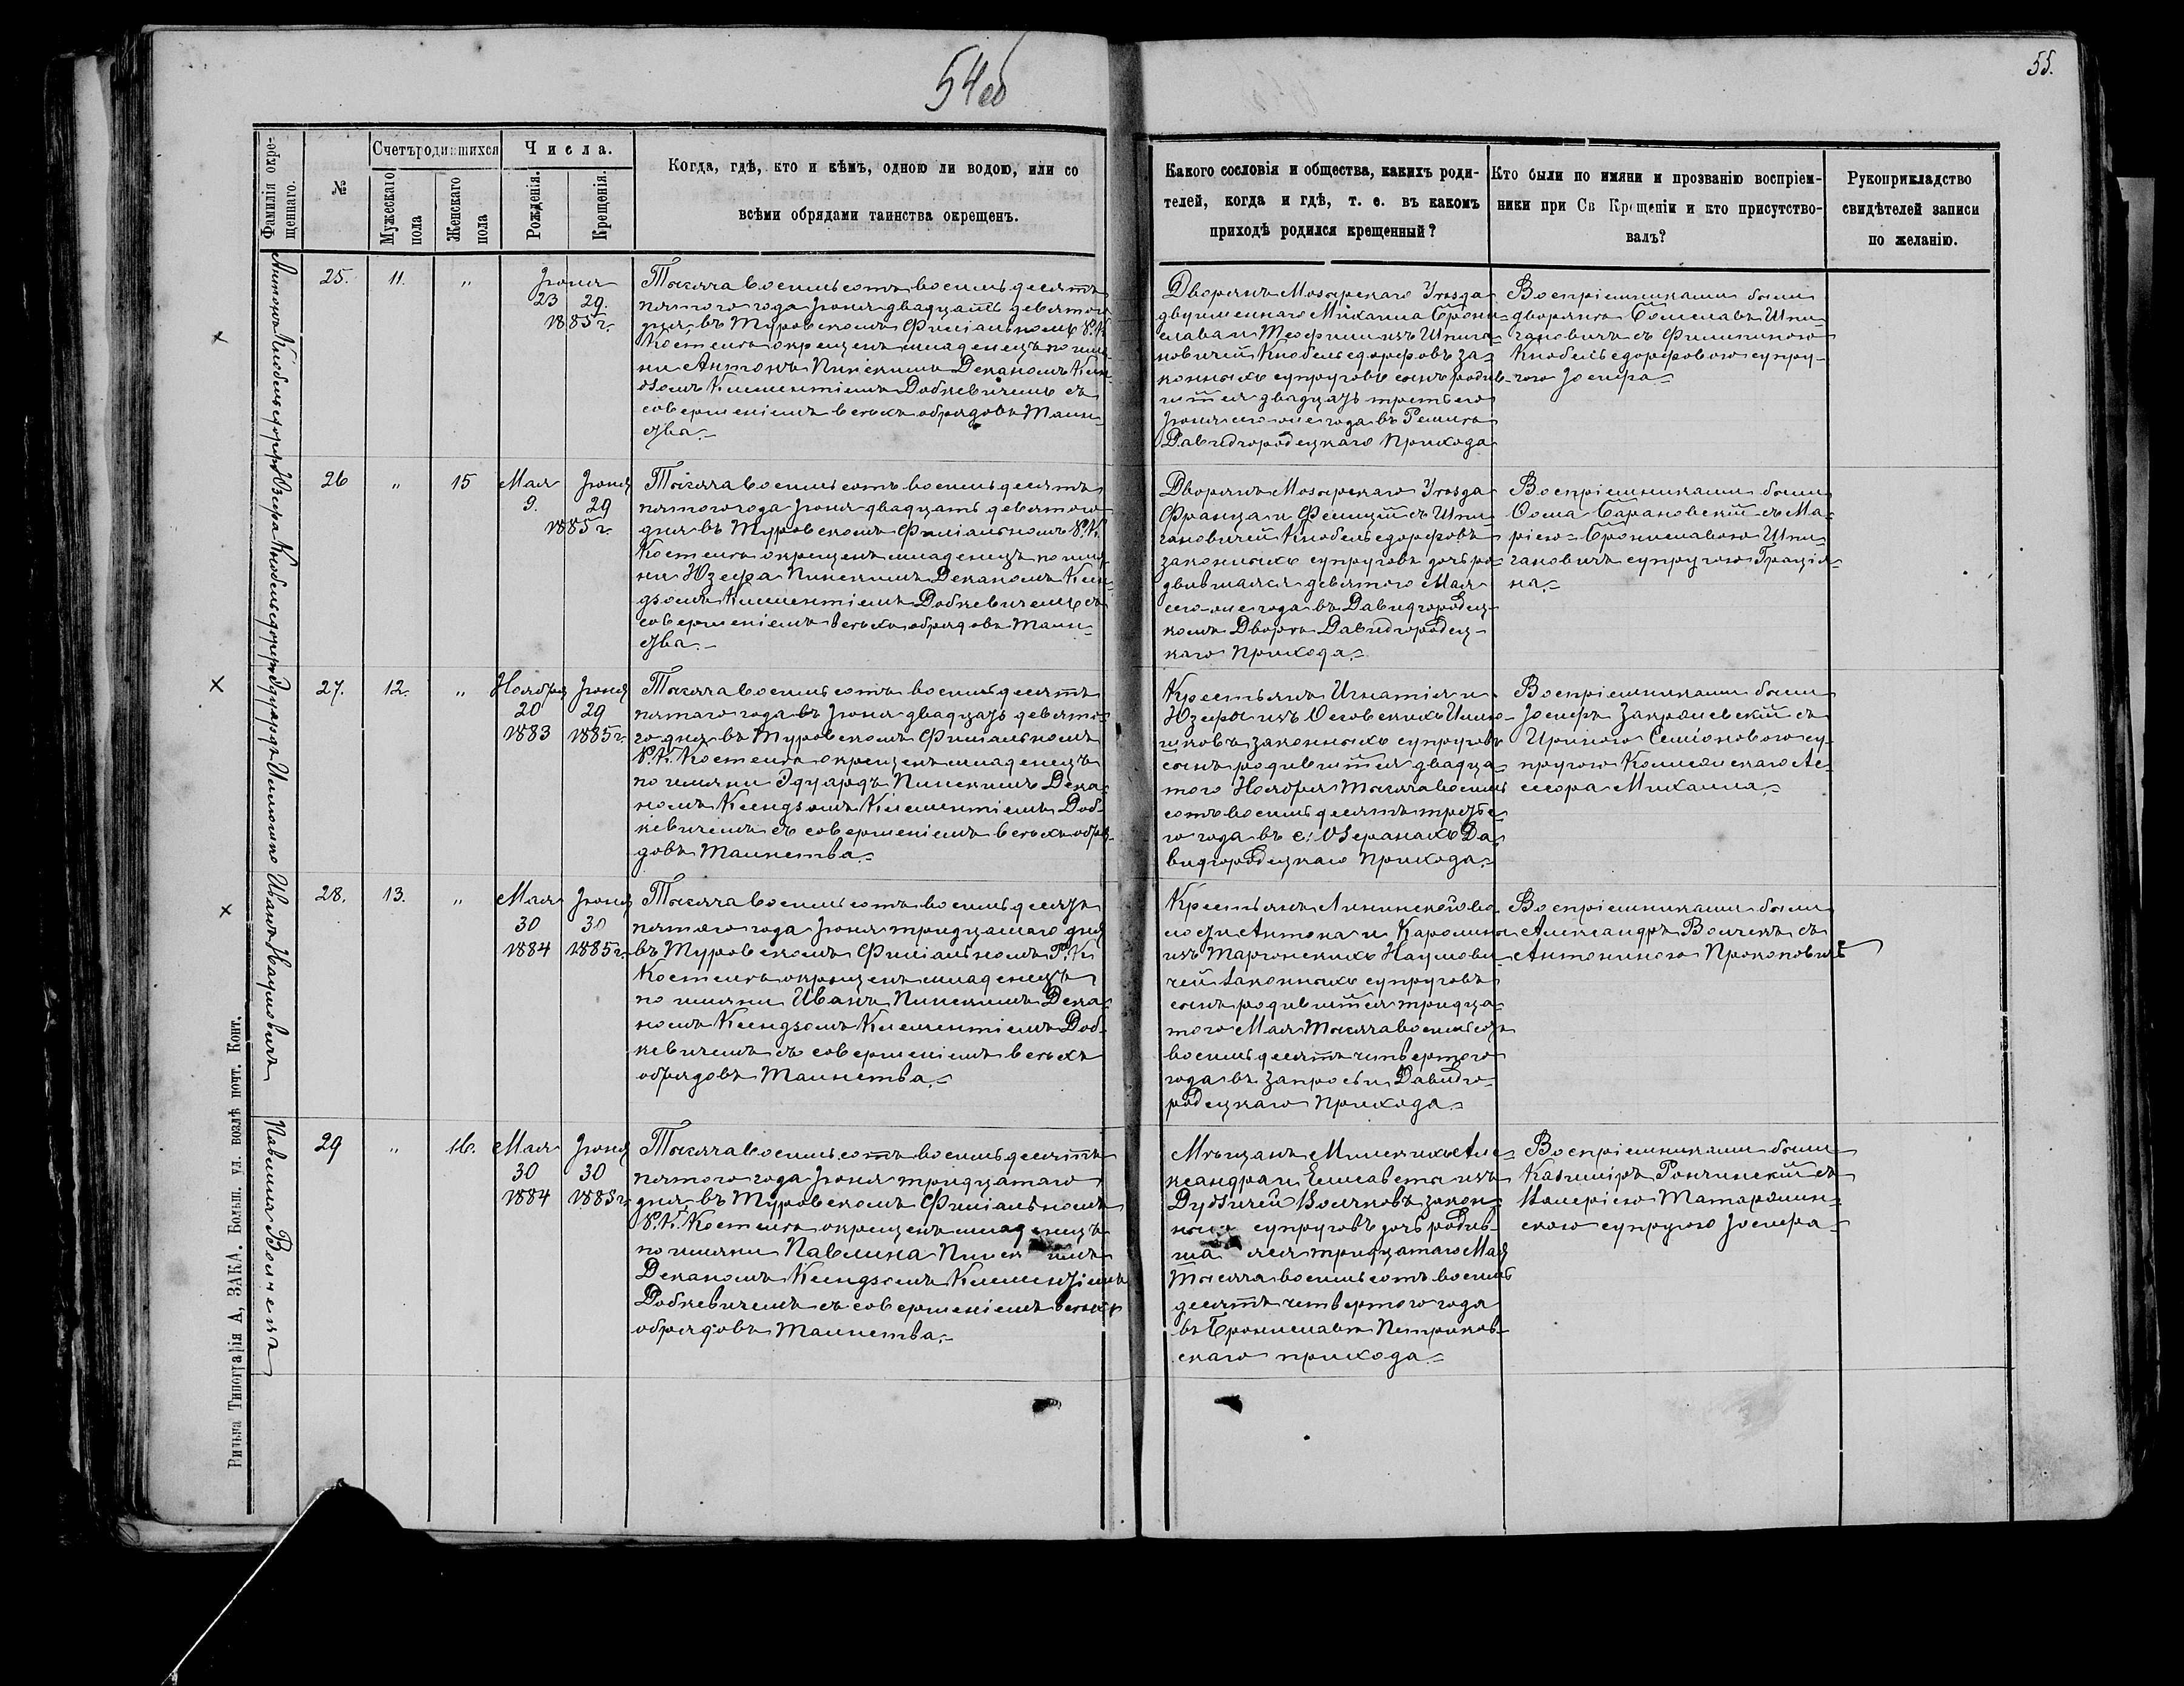 54об
55.
Фамилія окрещеннаго.
№
Счетъ родившихся
Мужескаго пола
Женскаго пола
Числа.
Рожденія.
Крещенія.
Когда, гдѣ, кто и кѣмъ, одною ли водою, или со
всѣми обрядами таинства окрещенъ.
Какого сословія и общества, какихъ роди-
телей, когда и гдѣ, т. е. въ какомъ
приходѣ родился крещенный?
Кто были по имяни и прозванію воспріем-
ники при Св Крещеніи и кто присутство-
валъ?
Рукоприкладство
свидѣтелей записи
по желанію.
Антонъ Кнобельсдорфъ
25.
11.
„
Іюня
23 29.
1885 г.
Тысяча восемьсотъ восемьдесятъ
пятого года Іюня двадцать девятого
дня въ Туровскомъ Филіальномъ Р.К.
Костелѣ окрещенъ младенецъ по имя-
ни Антонъ Пинскимъ Деканомъ Ксен-
дзомъ Климентіемъ Добкевичемъ съ
совершеніемъ всѣхъ обрядовъ Таин-
ства.
Дворянъ Мозырскаго Уѣзда
двуименнаго Михаила Брони-
слава и Теофили изъ Шпига-
новичей Кнобельсдорфовъ за-
конныхъ супруговъ сынъ родив-
шійся двадцать третьего
Іюня сего же года въ
Давидгородецкаго Прихода
Воспріемниками были
дворянъ Болеславъ Шпи-
гановичъ съ Филипиною
Кнобельсдорфовою супру-
гою Іосифа
Юзефа Кнобельсдорфъ
26
„
15
Мая Іюня
9. 29
1885 г.
Тысяча восемьсотъ восемьдесятъ
пятого года Іюня двадцать девятого
дня въ Туровскомъ Филіальномъ Р.К.
Костелѣ окрещенъ младенецъ по имя-
ни Юзефа Пинскимъ Деканомъ Ксен-
дзомъ Климентіемъ Добкевичемъ съ
совершеніемъ всѣхъ обрядовъ Таин-
ства.
Дворянъ Мозырскаго Уѣзда
Франца и Фелиціи съ Шпи-
гановичей Кнобельсдорфовъ
законныхъ супруговъ дочь ро-
дившаяся девятого Мая
сего-же года въ Давидгородец-
комъ Дворѣ Давидгородец-
каго Прихода.
Воспріемниками были
Ѳома Барановскій съ Ма-
ріею-Брониславою Шпи-
гановичъ супругою Граціа-
на.
Эдуардъ
27.
12.
„
Ноября Іюня
20 29
1883 1885 г.
Тысяча восемьсотъ восемьдесятъ
пятаго года въ Іюня двадцать девято-
го дня въ Туровскомъ Филіальномъ
Р.К. Костелѣ окрещенъ младенецъ
по имяни Эдуардъ Пинскимъ Дека-
номъ Ксендзомъ Климентіемъ Доб-
кевичемъ съ совершеніемъ всѣхъ обря-
довъ Таинства.
Крестьянъ Игнатія и
Юзефы изъ Осовскихъ
законныхъ супруговъ
сынъ родившійся двадца-
того Ноября тысяча восемь
сотъ восемьдесятъ третье-
го года въ с. Озеранахъ Да-
видгородецкаго Прихода.
Воспріемниками были
Іосифъ Закржевскій съ
Ириною Семіоновою су-
пругою
Михаила.
Иванъ Наумовичъ
28.
13.
„
Мая Іюня
30 30
1884 1885 г.
Тысяча восемьсотъ восемьдесятъ
пятого года Іюня тридцатаго дня
въ Туровскомъ Филіальномъ Р.К.
Костелѣ окрещенъ младенецъ
по имяни Иванъ Пинскимъ Дека-
номъ Ксендзомъ Климентіемъ Доб-
кевичемъ съ совершеніемъ всѣхъ
обрядовъ Таинства.
Крестьянъ Ленинской во-
лости Антона и Каролины
изъ Наумови-
чей законныхъ супруговъ
сынъ родившійся тридца-
того Мая тысяча восемьсотъ
восемьдесятъ четвертого
года въ Давидго-
родецкаго Прихода.
Воспріемниками были
Александръ Волчекъ съ
Антониною Прокоповичъ
Павлина Волчекъ
29
„
16.
Мая Іюня
30 30
1884 1885 г.
Тысяча восемьсотъ восемьдесятъ
пятого года Іюня тридцатаго
дня въ Туровскомъ Филіальномъ
Р.К. Костелѣ окрещенъ младенецъ
по имяни Павлина Пинскимъ
Деканомъ Ксендзомъ Климентіемъ
Добкевичемъ съ совершеніемъ всѣхъ
обрядовъ Таинства.
Мѣщанъ Минскихъ Але-
ксандра и Елисаветы изъ
Волчковъ закон-
ныхъ супруговъ дочь родив-
шаяся тридцатаго Мая
тысяча восемьсотъ восемь
десятъ четвертого года
въ Брониславѣ Петриков-
скаго прихода.
Воспріемниками были
Казиміръ съ
Валеріею
супругою Іосифа
Вильна Типографія А, ЗАКА. Больш. ул. возлѣ почт. Конт.